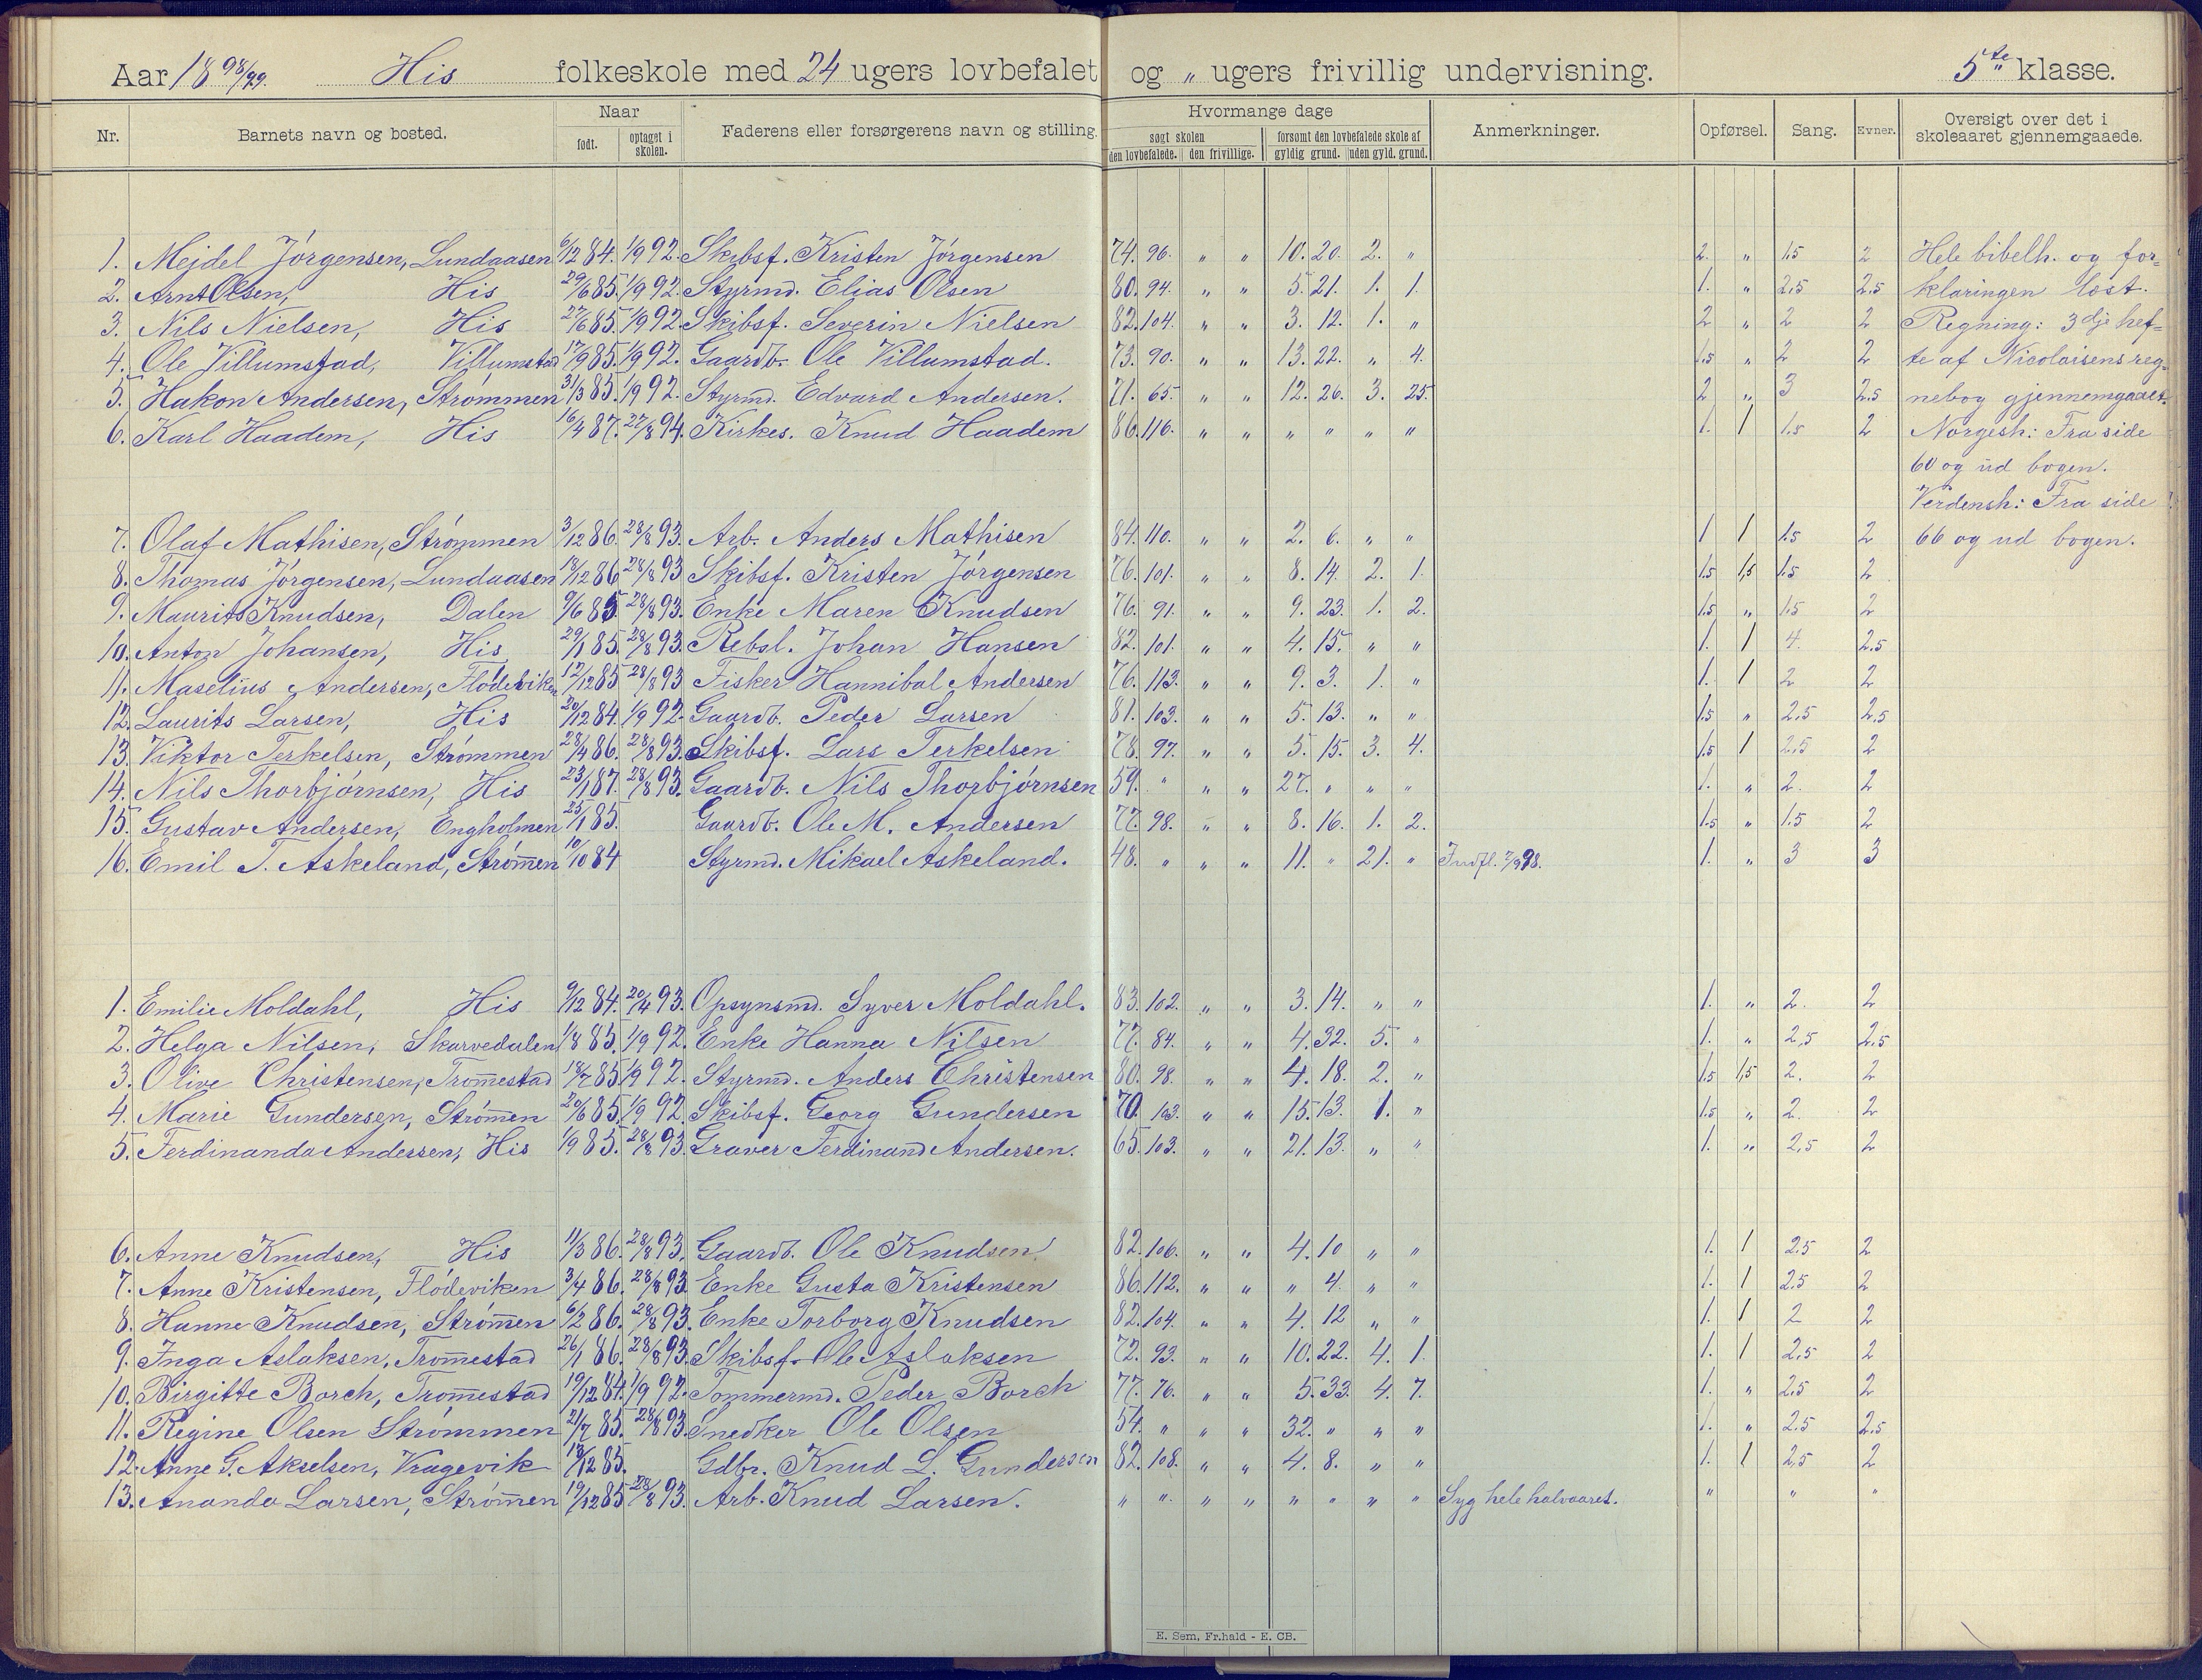 Aar 1898/99. His folkeskole med 24 ugers lovbefalet og „ ugers frivillig undervisning. 5te klasse.
Nr. Barnets navn og bosted. Naar født. optaget i skolen. Faderens eller forsørgerens navn og stilling. Hvormange dage søgt skolen den lovbefalede. den frivillige. forsømt den lovbefalede skole af gyldig grund. uden gyld. grund. Anmerkninger. Opførsel. Sang. Evner. Oversigt over det i skoleaaret gjennemgaaede.
1. Mejdel Jörgensen, Lundaasen 6/12 84. 1/9 92. Skibsf. Kristen Jörgensen 74. 96. „ „ 10. 20. 2. „ 2. „ 1.5 2 Hele bibelh. og for=
2. Arnt Olsen, His 29/6 85. 1/9 92. Styrmd. Elias Olsen 80. 94. „ „ 5. 21. 1. 1. 1. „ 2.5 2.5 klaringen læst.
3. Nils Nielsen, His 27/6 85. 1/9 92. Skibsf. Severin Nielsen 82. 104. „ „ 3. 12. 1. „ 2 „ 2 2 Regning: 3dje hef=
4. Ole Villumstad, Villumstad 17/9 85. 1/9 92. Gaardb. Ole Villumstad. 73. 90. „ „ 13. 22. „ 4. 1.5 „ 2 2 te af Nicolaisens reg=
5. Hakon Andersen, Strømmen 31/3 85. 1/9 92. Styrmd. Edvard Andersen. 71. 65. „ „ 12. 26. 3. 25. 2 „ 3 2.5 nebog gjennemgaaet.
6. Karl Haadem, His 16/4 87. 27/8 94. Kirkes. Knud Haadem 86. 116. „ „ „ „ „ „ 1. 1 1.5 2 Norgesh: Fra side
60 og ud bogen.
Verdensh: Fra side
7. Olaf Mathisen, Strømmen 3/12 86. 28/8 93. Arb. Anders Mathisen 84. 110. „ „ 2. 6. „ „ 1. 1 1.5 2 66 og ud bogen.
8. Thomas Jörgensen, Lundaasen 18/12 86 28/8 93 Skibsf. Kristen Jörgensen 76. 101. „ „ 8. 14. 2. 1. 1.5 1,5 1.5 2
9. Maurits Knudsen, Dalen 9/6 85. 28/8 93. Enke Maren Knudsen 76. 91. „ „ 9. 23. 1. 2. 1.5 „ 1.5 2
10. Anton Johansen, His 29/1 85. 28/8 93. Rebsl. Johan Hansen 82. 101. „ „ 4. 15. „ „ 1. 1 4. 2.5
11. Maselius Andersen, Flödeviken 17/12 85 28/8 93 Fisker Hannibal Andersen 76. 113. „ „ 9. 3. 1. „ 1. 1 2 2
12. Laurits Larsen, His 20/12 84. 1/9 92. Gaardb. Peder Larsen 81. 103. „ „ 5. 13. „ „ 1.5 „ 2.5 2.5
13. Viktor Terkelsen, Strømmen 28/4 86. 28/8 93. Skibsf. Lars Terkelsen 78. 97. „ „ 5. 15. 3. 4. 1.5 1 2.5 2
14. Nils Thorbjörnsen, His 23/1 87. 28/8 93. Gaardb. Nils Thorbjörnsen 59. „ „ „ 27. „ „ „ 1. „ 2. 2
15. Gustav Andersen, Engholmen 25/1 85. Gaardb. Ole M. Andersen 77. 98. „ „ 8. 16. 1. 2. 1.5 „ 1.5 2
16. Emil T. Askeland, Strömen 10/10 84 Styrmd. Mikael Askeland. 48. „ „ „ 11. „ 21. „ Indfl. 7/9 98. 1. „ 3 3
1. Emilie Moldahl, His 9/12 84. 20/4 93. Opsynsmd. Syver Moldahl. 83. 102. „ „ 3. 14. „ „ 1. „ 2. 2
2. Helga Nilsen, Skarvedalen 1/8 85. 1/9 92. Enke Hanna Nilsen 77. 84. „ „ 4. 32. 5. „ 1. „ 2,5 2.5
3. Olive Christensen, Tromestad 18/7 85. 1/9 92. Styrmd. Anders Christensen 80. 98. „ „ 4. 18. 2. „ 1.5 1,5 2. 2
4. Marie Gundersen, Strömen 20/6 85. 1/9 92. Skibsf. Georg Gundersen 70. 103. „ „ 15. 13. 1. „ 1.5 „ 2. 2
5. Ferdinanda Andersen, His 1/9 85. 28/8 93. Graver Ferdinand Andersen. 65. 103. „ „ 21. 13. „ „ 1. „ 2,5 2
6. Anne Knudsen, His 11/3 86. 28/8 93. Gaardb. Ole Knudsen 82. 106. „ „ 4. 10 „ „ 1. 1 2.5 2
7. Anne Kristensen, Flödeviken 3/4 86. 28/8 93. Enke Gusta Kristensen 86. 112. „ „ „ 4. „ „ 1. 1 2.5 2
8. Hanne Knudsen, Strömen 6/2 86. 28/8 93. Enke Torborg Knudsen 82. 104. „ „ 4. 12 „ „ 1. 1 2 2
9. Inga Aslaksen, Tromestad 26/1 86. 28/8 93. Skibsf. Ole Aslaksen 72. 93. „ „ 10. 22. 4. 1. 1. 1 2.5 2
10. Birgitte Borch, Tromestad 19/12 84. 1/9 92. Tommermd. Peder Borch 77. 76. „ „ 5. 33. 4. 7. 1. „ 2.5 2
11. Regine Olsen Strømmen 21/7 85. 28/8 93. Snedker Ole Olsen 54. „ „ „ 32. „ „ „ 1. „ 2.5 2.5
12. Anne G. Akselsen, Vragevik 13/12 85. Gdbr. Knud L. Gundersen 82. 108. „ „ 4. 8. „ „ 1. 1 2,5 2
13. Ananda Larsen, Strömen 19/12 85 28/8 93. Arb. Knud Larsen. „ „ „ „ „ „ „ „ Syg hele halvaaret. „ „ „
E. Sem, Fr.hald - E. CB.